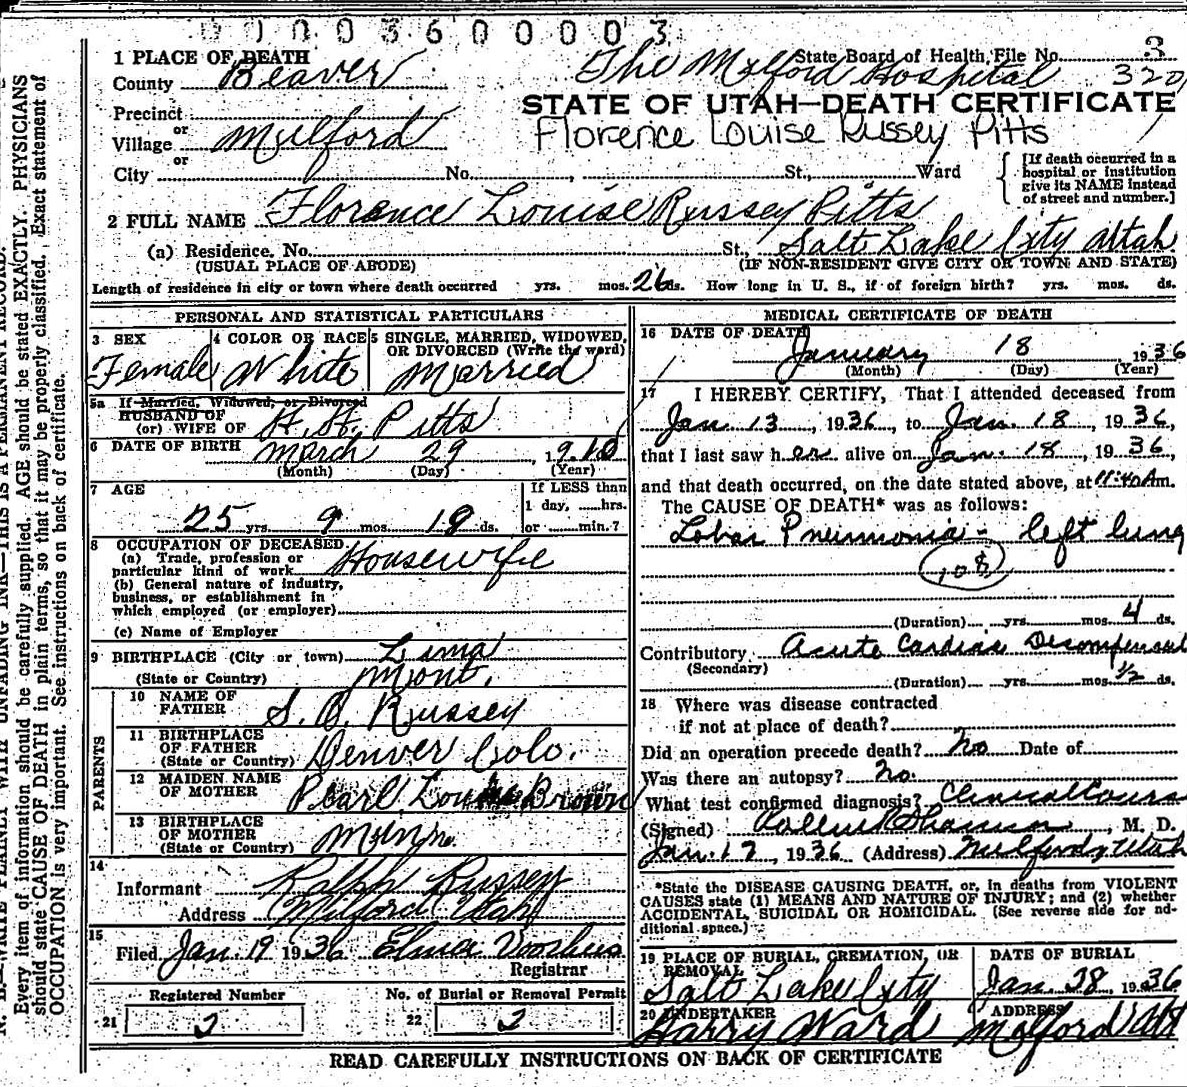 0003600003
1 PLACE OF DEATH
State Board of Health File No. 3
County Beaver
The Milford Hospital 320
STATE OF UTAH—DEATH CERTIFICATE
Precinct
or
Village Milford
Florence Louise Russey Pitts
or
City No. , St., Ward
[If death occurred in a
hospital or institution
give its NAME instead
of street and number.]
2 FULL NAME Florence Louise Russey Pitts
(a) Residence. No. St., Salt Lake City Utah
(USUAL PLACE OF ABODE) (IF NON-RESIDENT GIVE CITY OR TOWN AND STATE)
Length of residence in city or town where death occurred yrs. mos. 26 ds. How long in U. S., if of foreign birth? yrs. mos. ds.
PERSONAL AND STATISTICAL PARTICULARS
3 SEX
Female
4 COLOR OR RACE
White
5 SINGLE, MARRIED, WIDOWED,
OR DIVORCED (Write the word)
Married
5a If Married, Widowed, or Divorced
HUSBAND OF
(or) WIFE OF H. H. Pitts
6 DATE OF BIRTH March 29, 1910
(Month) (Day) (Year)
7 AGE
25 yrs. 9 mos. 18 ds.
If LESS than
1 day, hrs.
or min.?
8 OCCUPATION OF DECEASED
(a) Trade, profession or
particular kind of work Housewife
(b) General nature of industry,
business, or establishment in
which employed (or employer)
(c) Name of Employer
9 BIRTHPLACE (City or town) Lima
(State or Country) Mont.
PARENTS
10 NAME OF
FATHER S. B. Russey
11 BIRTHPLACE
OF FATHER
(State or Country) Denver Colo.
12 MAIDEN NAME
OF MOTHER Pearl Louise Brown
13 BIRTHPLACE
OF MOTHER
(State or Country) Minn.
14
Informant Ralph Russey
Address Milford Utah
15
Filed Jan. 19 1936 Elmer
Registrar
Registered Number
21 2
No. of Burial or Removal Permit
22 2
MEDICAL CERTIFICATE OF DEATH
16 DATE OF DEATH
January 18, 1936
(Month) (Day) (Year)
17 I HEREBY CERTIFY, That I attended deceased from
Jan. 13, 1936, to Jan. 18, 1936,
that I last saw h er alive on Jan. 18, 1936,
and that death occurred, on the date stated above, at 11:40 Am.
The CAUSE OF DEATH* was as follows:
Lobar Pneumonia - left lung
108
(Duration) yrs. mos. 4 ds.
Contributory Acute Cardiac
(Secondary)
(Duration) yrs. mos. 1/2 ds.
18 Where was disease contracted
if not at place of death?
Did an operation precede death? No Date of
Was there an autopsy? No.
What test confirmed diagnosis? Clinical Course
(Signed) , M. D.
Jan. 17, 1936 (Address) Milford, Utah
*State the DISEASE CAUSING DEATH, or, in deaths from VIOLENT
CAUSES state (1) MEANS AND NATURE OF INJURY; and (2) whether
ACCIDENTAL, SUICIDAL OR HOMICIDAL. (See reverse side for ad-
ditional space.)
19 PLACE OF BURIAL, CREMATION, OR
REMOVAL
Salt Lake City
DATE OF BURIAL
Jan. 28, 1936
20 UNDERTAKER
Harry Ward
ADDRESS
Milford Ut
READ CAREFULLY INSTRUCTIONS ON BACK OF CERTIFICATE
N. B.—WRITE PLAINLY WITH UNFADING INK—THIS IS A PERMANENT RECORD.
Every item of information should be carefully supplied. AGE should be stated EXACTLY. PHYSICIANS
should state CAUSE OF DEATH in plain terms, so that it may be properly classified. Exact statement of
OCCUPATION is very important. See instructions on back of certificate.